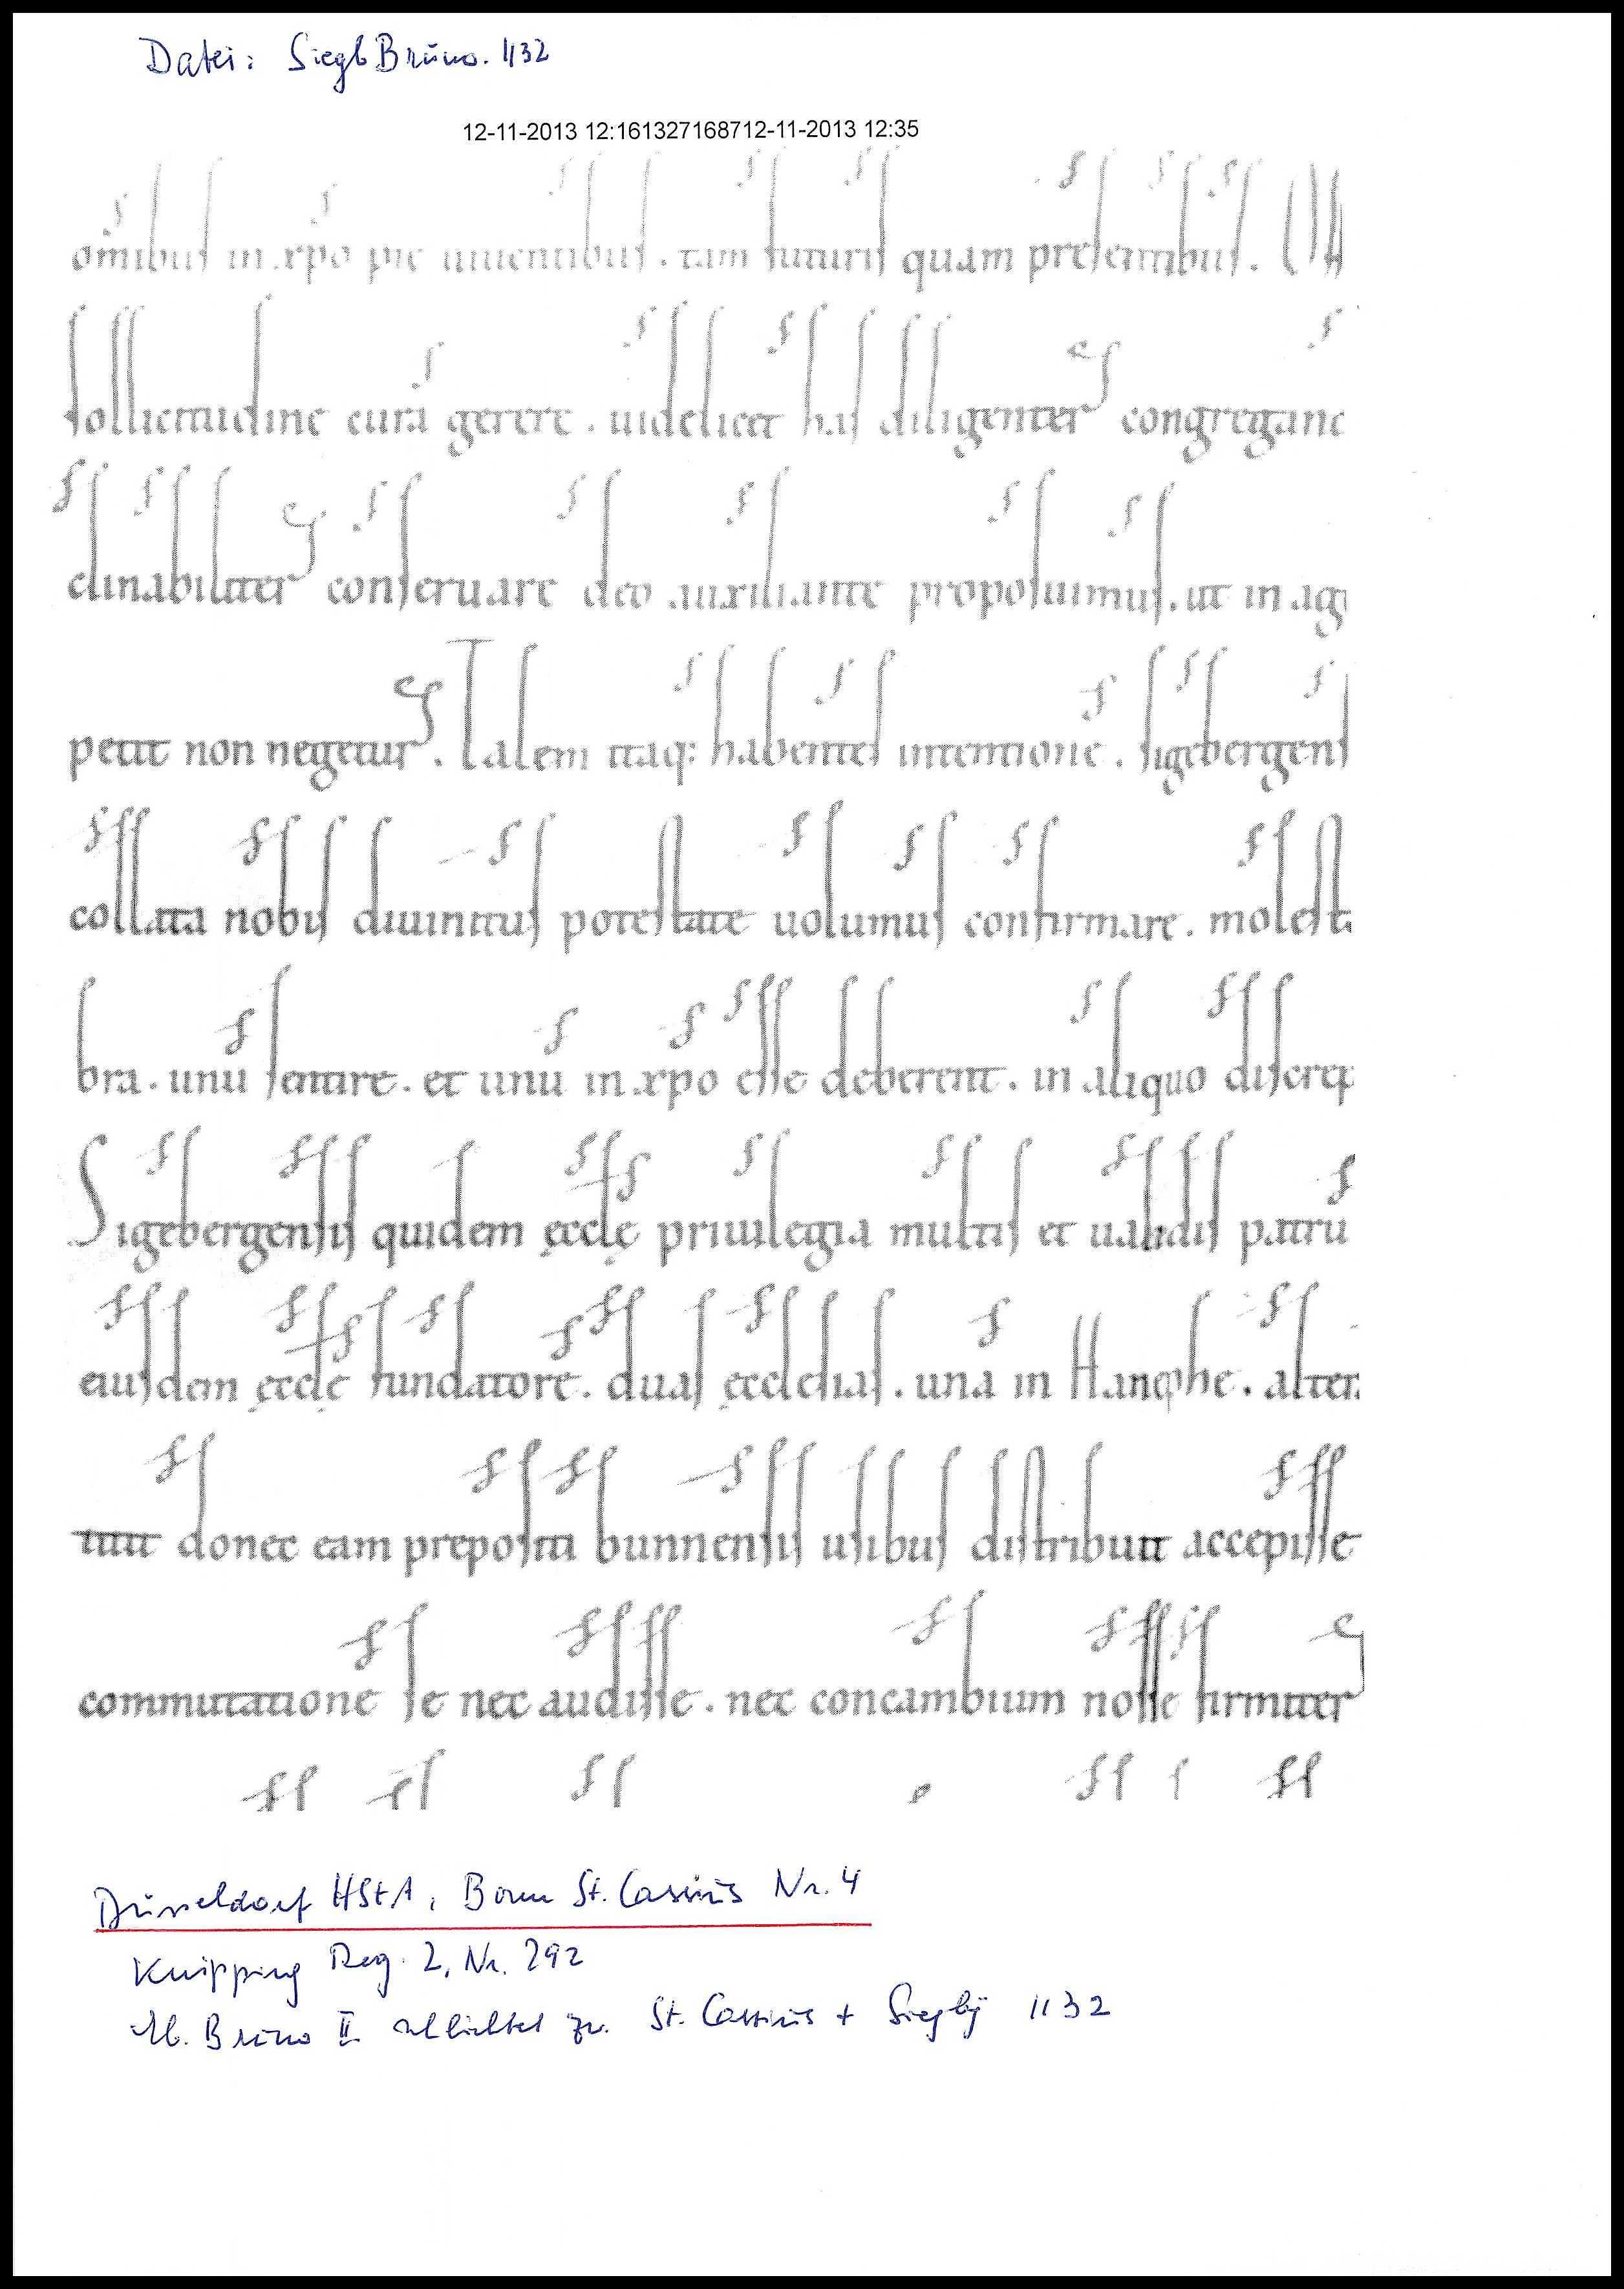 Datei: SiegbBruno.1132
12-11-2013 12:161327168712-11-2013 12:35
om̄ibus in xp̄o pie uiuentibus . tam futuris quam presentibus .
sollicitudine curā gerere . uidelicet has diligenter congregand
clinabiliter conseruare deo auxiliante proposuimus . ut in agr
petit non negetur . Talem itaq: habentes intentionē . sigebergens
collata nobis diuinitus potestate uolumus confirmare . molesta
bra . unū sentire . et unū in xp̄o esse deberent . in aliquo discrep
Sigebergensis quidem ęccl̄ę priuilegia multis et ualidis patrū
eiusdem ęccl̄ę fundatorē . duas ęcclesias . unā in Hanephe . alter
tuit donec eam prepositū bunnensis usibus distribuit accepisse
commutatione se nec audisse . nec concambium nosse firmiter
Düsseldorf HStA, Bonn St. Cassius Nr. 4
Knipping Reg. 2, Nr. 292
Eb. Bruno II schlichtet zw. St. Cassius + Siegbg 1132